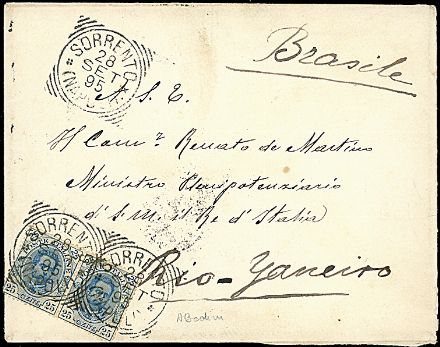 SORRENTO
28
SET
95
(NAPOLI)
Brasile
A. S. E.
Il Comm.r Renato de Martino
Ministro Plenipotenziario
d' S. M. il Re d'Italia
Rio-Janeiro
SORRENTO
28
95
SORRENTO
28
SET
95
25 25 CENT. 25
ABodini